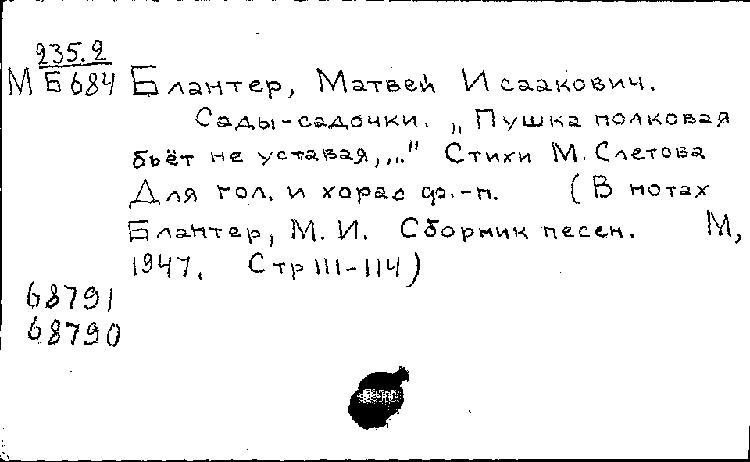 235.2
М Б684 Блантер, Матвей Исаакович.
Сады-садочки. „Пушка полковая
бьёт не уставая,..." Стихи М. Слетова
Для гол. и хора с ф.-п. (В нотах
Блантер, М. И. Сборник песен. М,
1947. Стр 111-114)
68791
68790